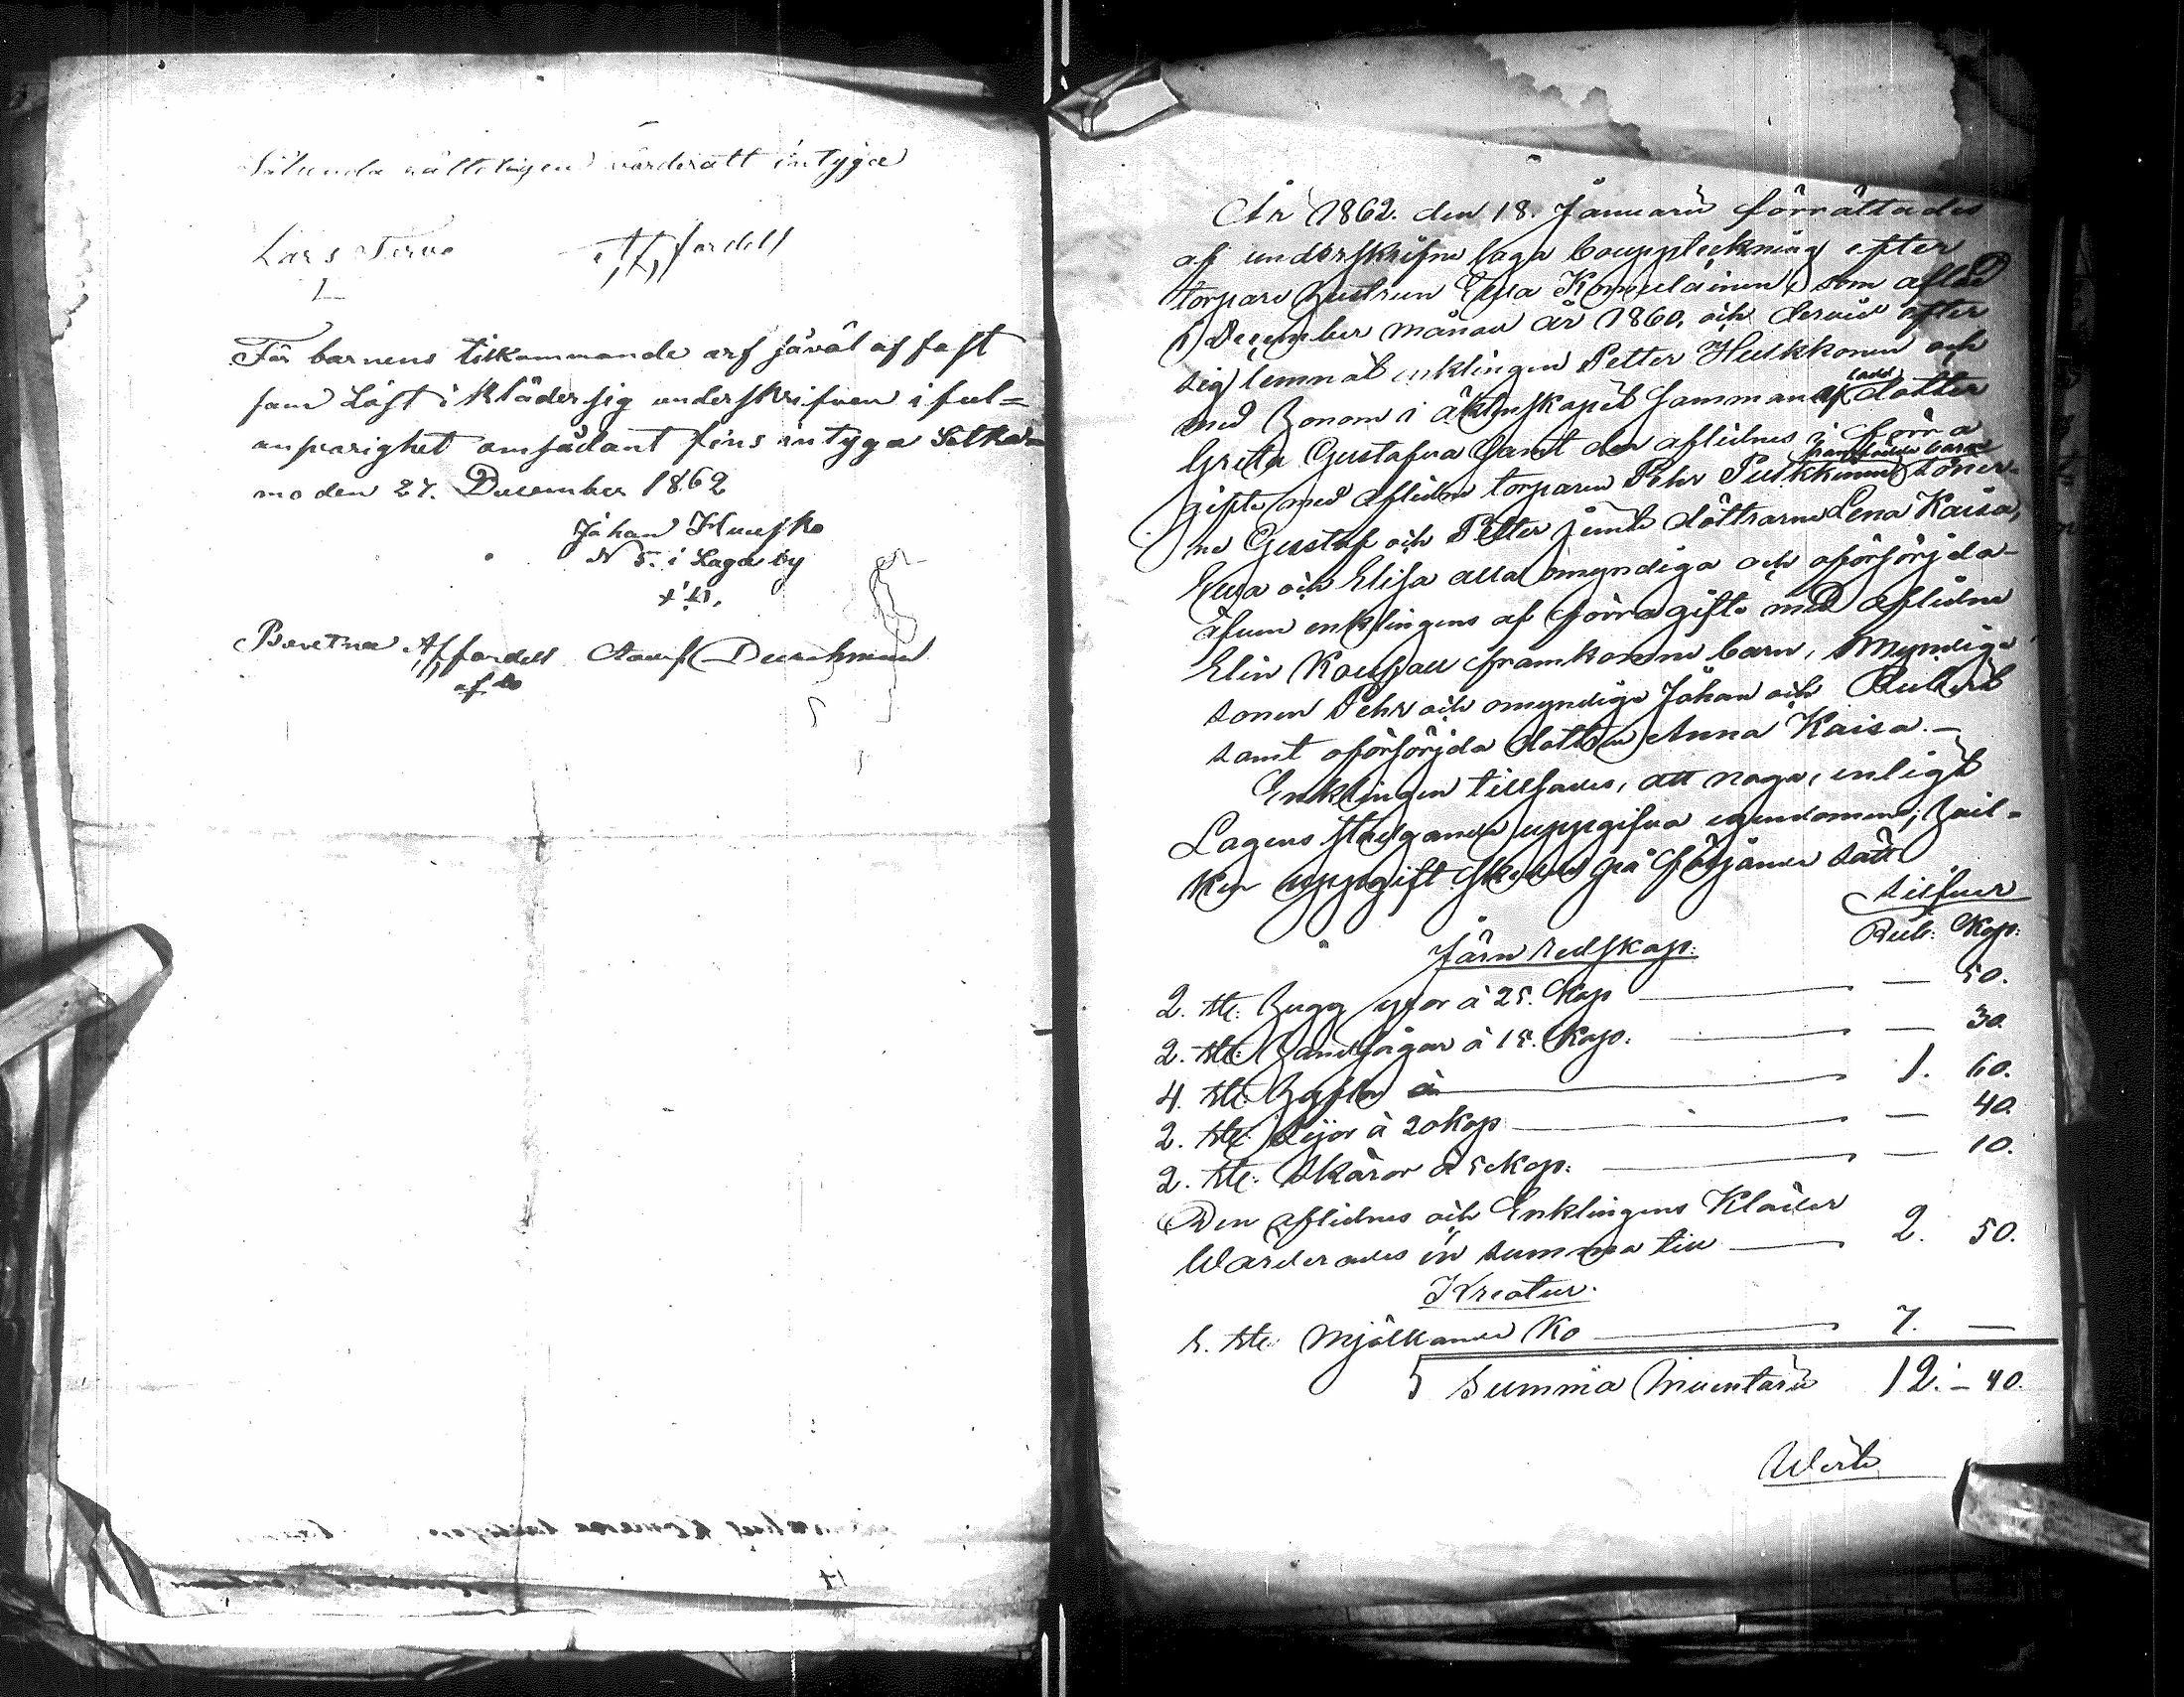 Sålunda rätteligen värderatt intyga
Lars Tervo A. Fordell
För barnens tilkommande arf såväl af fast
som Löst i Kläder sig underskrifven i ful=
ansvarighet omsådant fins intyga Sotka=
mo den 27. December 1862
Johan Huusko
N 5. i Laga by
Bevitna A. Fordell Adolf
År 1862. den 18. Januarii förrättades
af underskrifne laga bouppteckning efter
torpare hustrun Ewa Komulainen, som afled
i December månad år 1860, och dervid efter
sig lemnat enklingen Petter Hulkkonen och
med honom i äktenskapet sammanaflad dotter
Greta Gustafva samt den aflidnes i förra
gifte med aflidne torparen Pehr Pulkkinen framfödde barn söner-
ne Gustaf och Petter jemte döttrarne Lena Kaisa,
Ewa och Elisa alla omyndiga och oförsörjda-
äfven enklingens af förra gifte med aflidne
Elin framkomne barn, myndige
sonen Pehr och omyndige Johan och
samt oförsörjda dottren Anna Kaisa.-
Enklingen tillsades, att noga, enligt
Lagens stadgande uppgifva egendomen, hvil-
ken uppgift skedde på följande sätt
Silfver
Rub: Kop:
Järn redskap:
2. st: hugg yxor à 25. Kop — 50.
2. st: handsågar à 15. Kop. — 30.
4. st: à 1. 60.
2. st: Lijor à 20 Kop — 40.
2. st: Skäror à 5 Kop: — 10.
Den aflidnes och Enklingens Kläder
Wärderades in summa till 2. 50.
Kreatur.
1. st: Mjölkande Ko 7. —
Summa Inventarii 12.— 40.